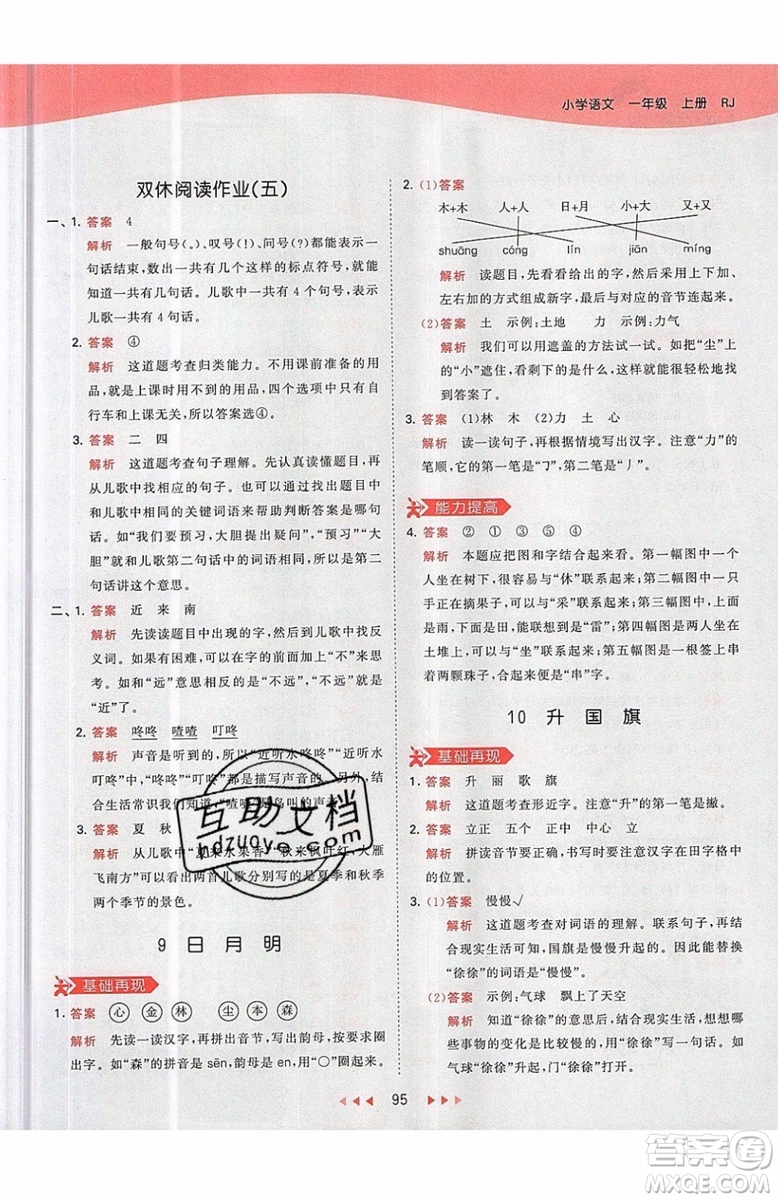 小学语文 一年级 上册 RJ
双休阅读作业(五)
一、1. 答案 4
解析 一般句号(。)、叹号(!)、问号(?)都能表示一
句话结束,数出一共有几个这样的标点符号,就能知
道一共有几句话。儿歌中一共有 4 个句号,所以这首
儿歌一共有 4 句话。
2. 答案 ④
解析 这道题考查归类能力。不用课前准备好就是
可以,课桌上应该摆哪些东西,最后可以知道,只有自
行车和上课无关,所以答案选④。
3. 答案 二 四
解析 这道题考查句子理解。先认真读懂题目,再
从儿歌中找到相应的句子。可以通过找到题目中与
儿歌中相同的关键词语来帮助判断答案是哪一句
话。如“我们要预习,大胆提出疑问”,“预习”“大
胆”就和儿歌第二句话中的词语相同,所以是第二
句话讲这个意思。
二、1. 答案 近 来 南
解析 先读读题目中出现的字,然后到儿歌中找反
义词。如果有困难,可以在字的前面加上“不”来思
考。比如“远”意思相反的是“不远”,“不远”就是
“近”了。
2. 答案 咚咚 喳喳 叮咚
解析 声音是可以听到的,所以“近听水咚咚”“泉水
叮咚”中,“咚咚”“叮咚”都是描写声音的。另外,结合
生活常识我们知道“喳喳”是鸟叫的声音。
3. 答案 夏 秋
解析 从儿歌中“夏来水果香”“秋来枫叶红,大雁
飞南方”可以看出这两首儿歌分别写的是夏季和秋季
两个季节的景色。
9 日 月 明
基础再现
1. 答案 心 金 林 尘 本 森
解析 先读一读汉字,再拼读音节,写出韵母,按要求圈
出字。如“森”的拼音是 sēn,韵母是 en,用“○”圈起来。
2. (1)答案
木+木 人+人 日+月 小+大 又+又
shuāng cóng lín jiān míng
解析 读题目,先看看给出的字,试着用上下加、
左右加的方式组成新字,读一读,和对应的音节连起来。
(2)答案 土 示例:土地 力 示例:力气
解析 我们可以用遮盖的方法试一试。如把“尘”上
的“小”遮住,看剩下的是什么字,就能很轻松地找
到答案了。
3. 答案 (1)林 木 (2)力 土 心
解析 读一读句子,再根据情境填写出汉字。注意“力”的
笔顺,它的第一笔是“㇆”,第二笔是“丿”。
能力提高
4. 答案 ② ① ③ ⑤ ④
解析 本题应把图和字结合起来看。第一幅图中一个
人坐在树下,很容易与“休”联系起来;第二幅图中一
只手正在摘果子,可以与“采”联系起来;第三幅图上面是
雨,下面是田,能联想到“雷”;第四幅图是两人坐在
土堆上,可以与“坐”联系起来;第五幅图是一根签上串
着两颗珠子,容易想起“串”字。
10 升 国 旗
基础再现
1. 答案 升 丽 歌 旗
解析 这道题考查形近字。注意“升”的第一笔是撇。
2. 答案 立正 五个 正中 中心 立
解析 拼读音节要正确,书写时要注意汉字在田字格中
的位置。
3. (1)答案 慢慢√
解析 这道题考查对词语的理解。联系句子,结
合现实生活可知,国旗是慢慢升起的。所以可以代替
“徐徐”的词语是“慢慢”。
(2)答案 示例:气球 飘上了天空
解析 知道“徐徐”的意思后,结合现实生活,看哪些
事物的变化是比较慢的,再用“徐徐”写一句话。如
气球“徐徐”升起,门“徐徐”打开。
95
互助文档
hdzuoye.com
答案圈
MXQE.COM